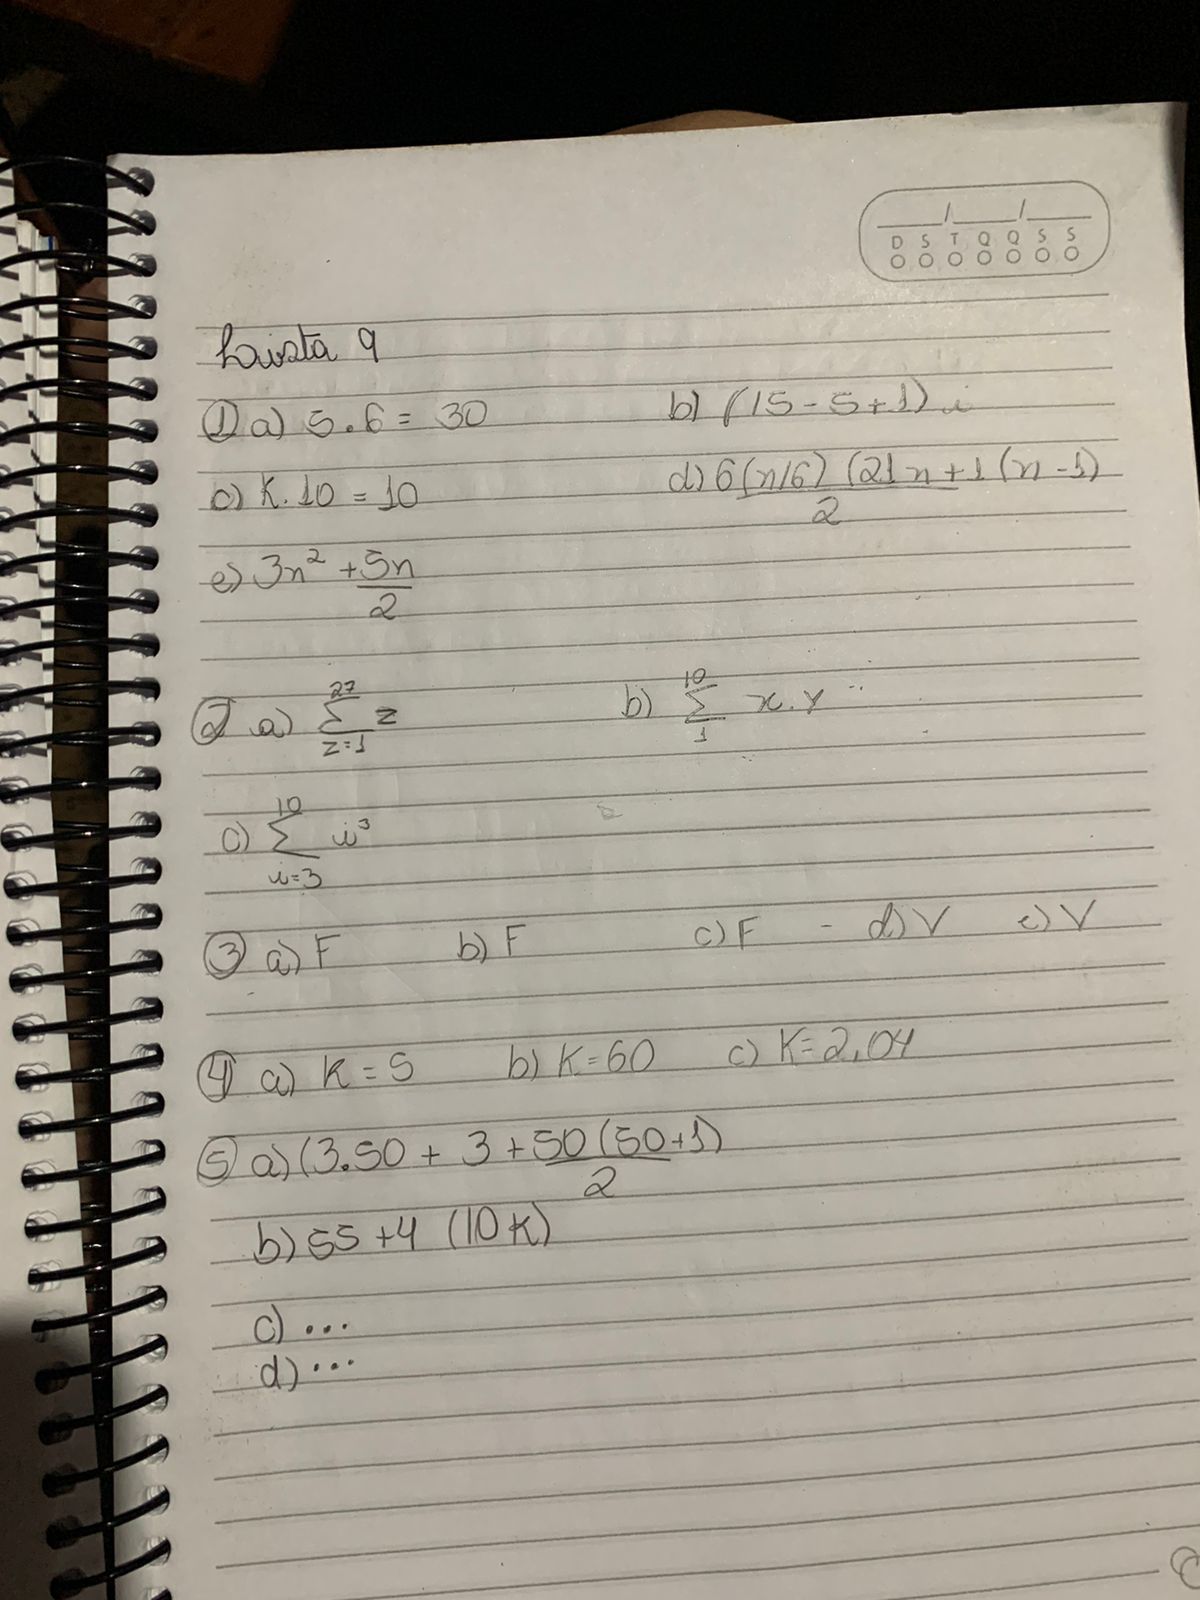 / /
D S T Q Q S S
Lista 9
① a) 5.6 = 30 b) (15-5+1) i
c) K.10 = 10 d) 6(n/6) (21n+1(n-1)
2
e) 3n² + 5n
2
27 10
② a) Σ z b) Σ x.y
z=1 1
10
c) Σ i³
i=3
③ a) F b) F c) F - d) V e) V
④ a) K = 5 b) K=60 c) K=2,04
⑤ a) (3.50 + 3 + 50(50+1)
2
b) 55+4 (10K)
c) ...
d) ...